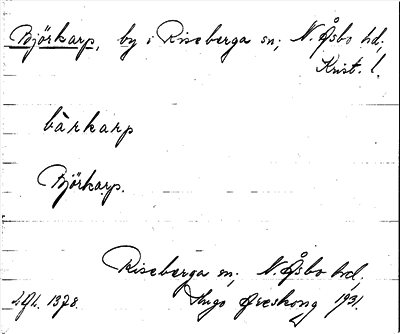 Björkarp, by i Riseberga sn; N. Åsbo hd;
Krist. l.
bàrkarp
Björkarp.
Riseberga sn; N. Åsbo hd;
1378. Hugo Areskoug 1931.